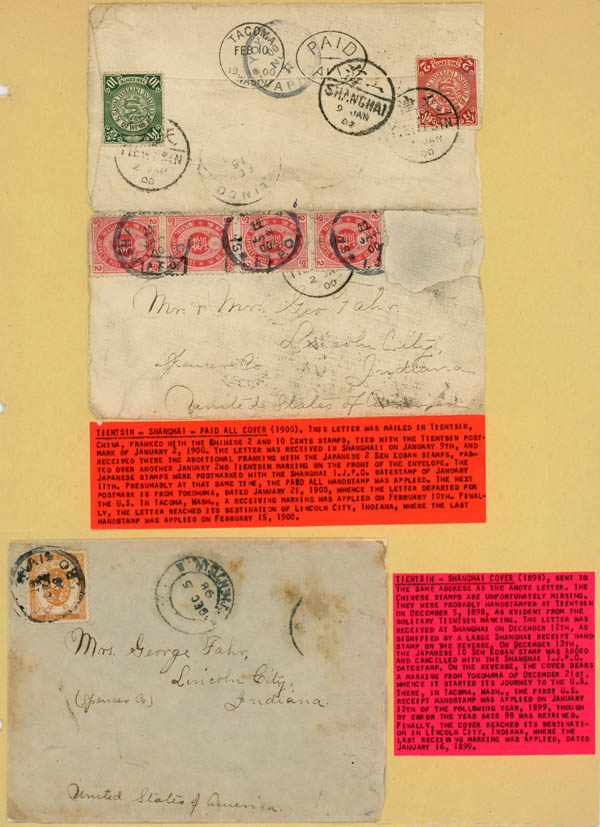 TACOMA
FEB 10
00
PAID
A
SHANGHAI
9 JAN
TIENTSIN
2 JAN
00
TIENTSIN
JAN
00
10
10
2
2
LINCO
15
2
2
2
2
2
2
00
Mr. & Mrs. Geo Fahr.
Lincoln City,
Spencer Co
Indiana
United States of America
TIENTSIN - SHANGHAI - PAID ALL COVER (1900). THIS LETTER WAS MAILED IN TIENTSIN,
CHINA, FRANKED WITH THE CHINESE 2 AND 10 CENTS STAMPS, TIED WITH THE TIENTSIN POST-
MARK OF JANUARY 2, 1900. THE LETTER WAS RECEIVED IN SHANGHAI ON JANUARY 9TH, AND
RECEIVED THERE THE ADDITIONAL FRANKING WITH THE JAPANESE 2 SEN KOBAN STAMPS, PAS-
TED OVER ANOTHER JANUARY 2ND TIENTSIN MARKING ON THE FRONT OF THE ENVELOPE. THE
JAPANESE STAMPS WERE POSTMARKED WITH THE SHANGHAI I.J.P.O. DATESTAMP OF JANUARY
11TH. PRESUMABLY AT THAT SAME TIME, THE PAID ALL HANDSTAMP WAS APPLIED. THE NEXT
POSTMARK IS FROM YOKOHAMA, DATED JANUARY 21, 1900, WHENCE THE LETTER DEPARTED FOR
THE U.S. IN TACOMA, WASH., A RECEIVING MARKING WAS APPLIED ON FEBRUARY 10TH. FINAL-
LY, THE LETTER REACHED ITS DESTINATION OF LINCOLN CITY, INDIANA, WHERE THE LAST
HANDSTAMP WAS APPLIED ON FEBRUARY 15, 1900.
TIENTSIN
DEC 5
98
Mrs. George Fahr,
Lincoln City,
(Spencer Co)
Indiana.
United States of America.
TIENTSIN - SHANGHAI COVER (1898), SENT TO
THE SAME ADDRESS AS THE ABOVE LETTER. THE
CHINESE STAMPS ARE UNFORTUNATELY MISSING.
THEY WERE PROBABLY HANDSTAMPED AT TIENTSIN
ON DECEMBER 5, 1898, AS EVIDENT FROM THE
SOLITARY TIENTSIN MARKING. THE LETTER WAS
RECEIVED AT SHANGHAI ON DECEMBER 12TH, AS
SIGNIFIED BY A LARGE SHANGHAI RECEIPT HAND
STAMP ON THE REVERSE. ON DECEMBER 13TH,
THE JAPANESE 10 SEN KOBAN STAMP WAS ADDED
AND CANCELLED WITH THE SHANGHAI I.J.P.O.
DATESTAMP. ON THE REVERSE, THE COVER BEARS
A MARKING FROM YOKOHAMA OF DECEMBER 21ST,
WHENCE IT STARTED ITS JOURNEY TO THE U.S.
THERE, IN TACOMA, WASH., THE FIRST U.S.
RECEIPT HANDSTAMP WAS APPLIED ON JANUARY
10TH OF THE FOLLOWING YEAR, 1899, THOUGH
BY ERROR THE YEAR DATE 98 WAS RETAINED.
FINALLY, THE COVER REACHED ITS DESTINATI-
ON IN LINCOLN CITY, INDIANA, WHERE THE
LAST RECEIVING MARKING WAS APPLIED, DATED
JANUARY 16, 1899.